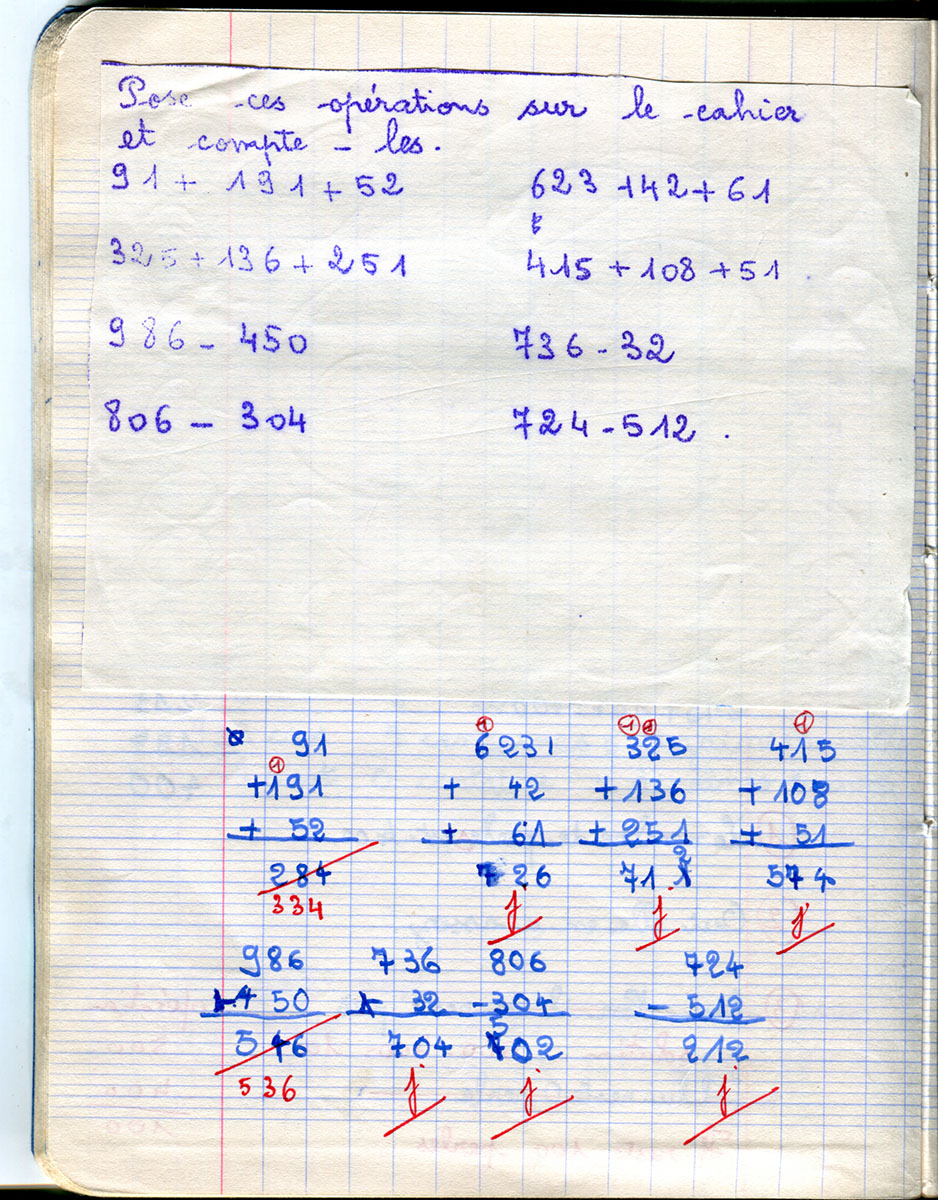 Pose ces opérations sur le cahier
et compte - les.
91 + 191 + 52 623 + 142 + 61
325 + 136 + 251 415 + 108 + 51 .
986 - 450 736 - 32
806 - 304 724 - 512 .
1 1 1 1
91 6231 325 415
1
+191 + 42 +136 + 108
+ 52 + 61 + 251 + 51
284 726 712 574
334 j j j
986 736 806 724
- 450 - 32 - 304 - 512
546 704 502 212
536 j j j